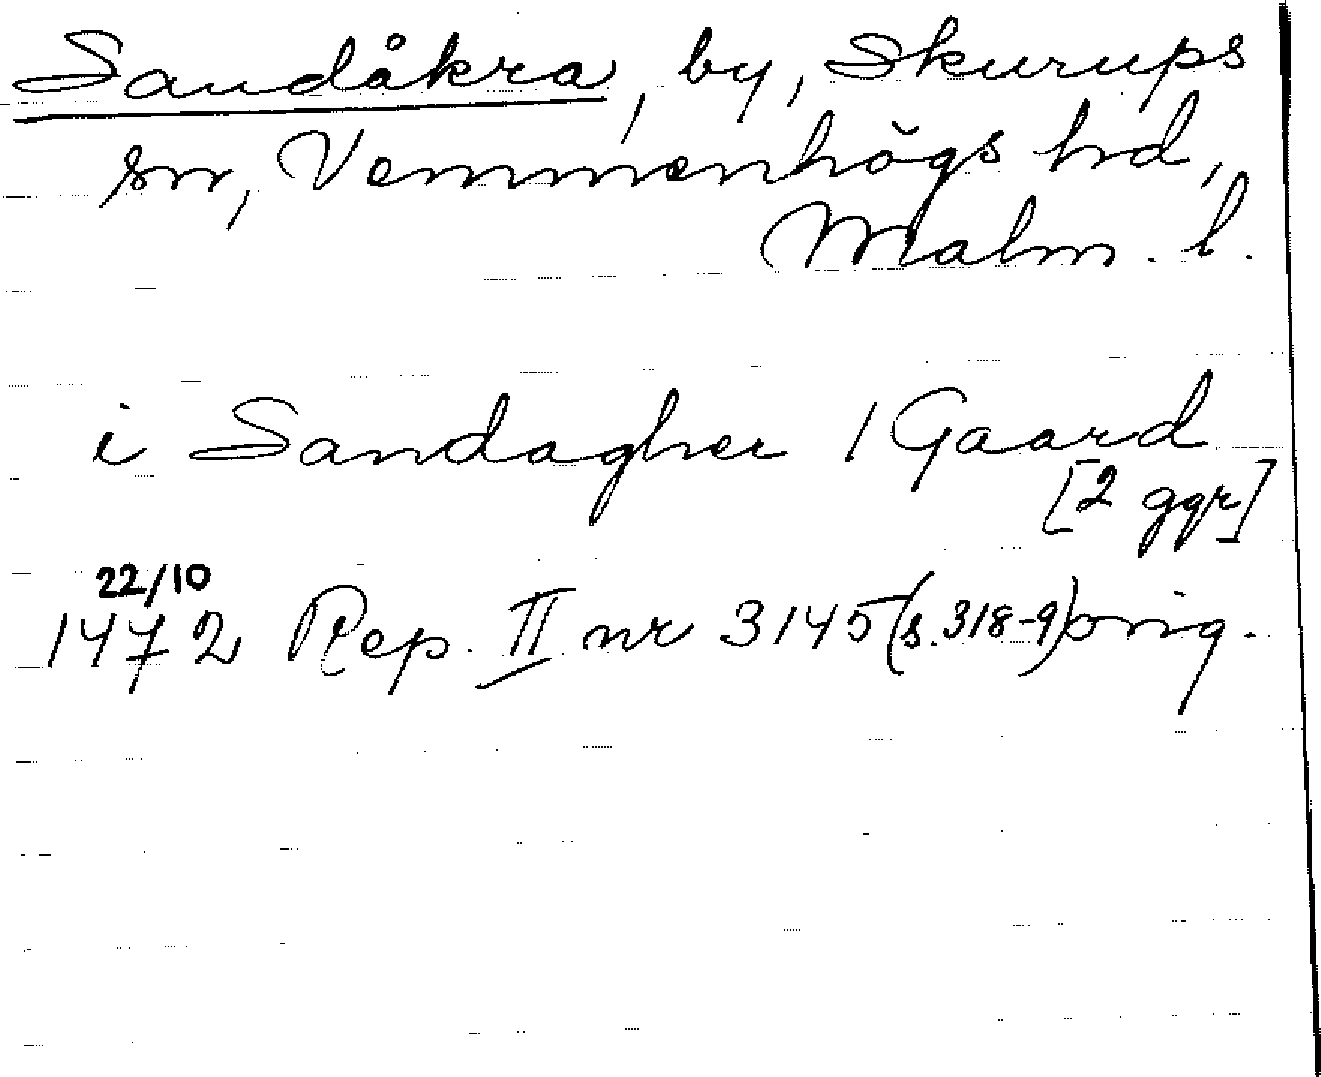 Sandåkra, by, Skurups
sn, Vemmenhögs hd,
Malm. l.
i Sandagher 1 Gaard
[2 ggr]
22/10
1472 Rep. II nr 3145 (s. 318-9) orig.